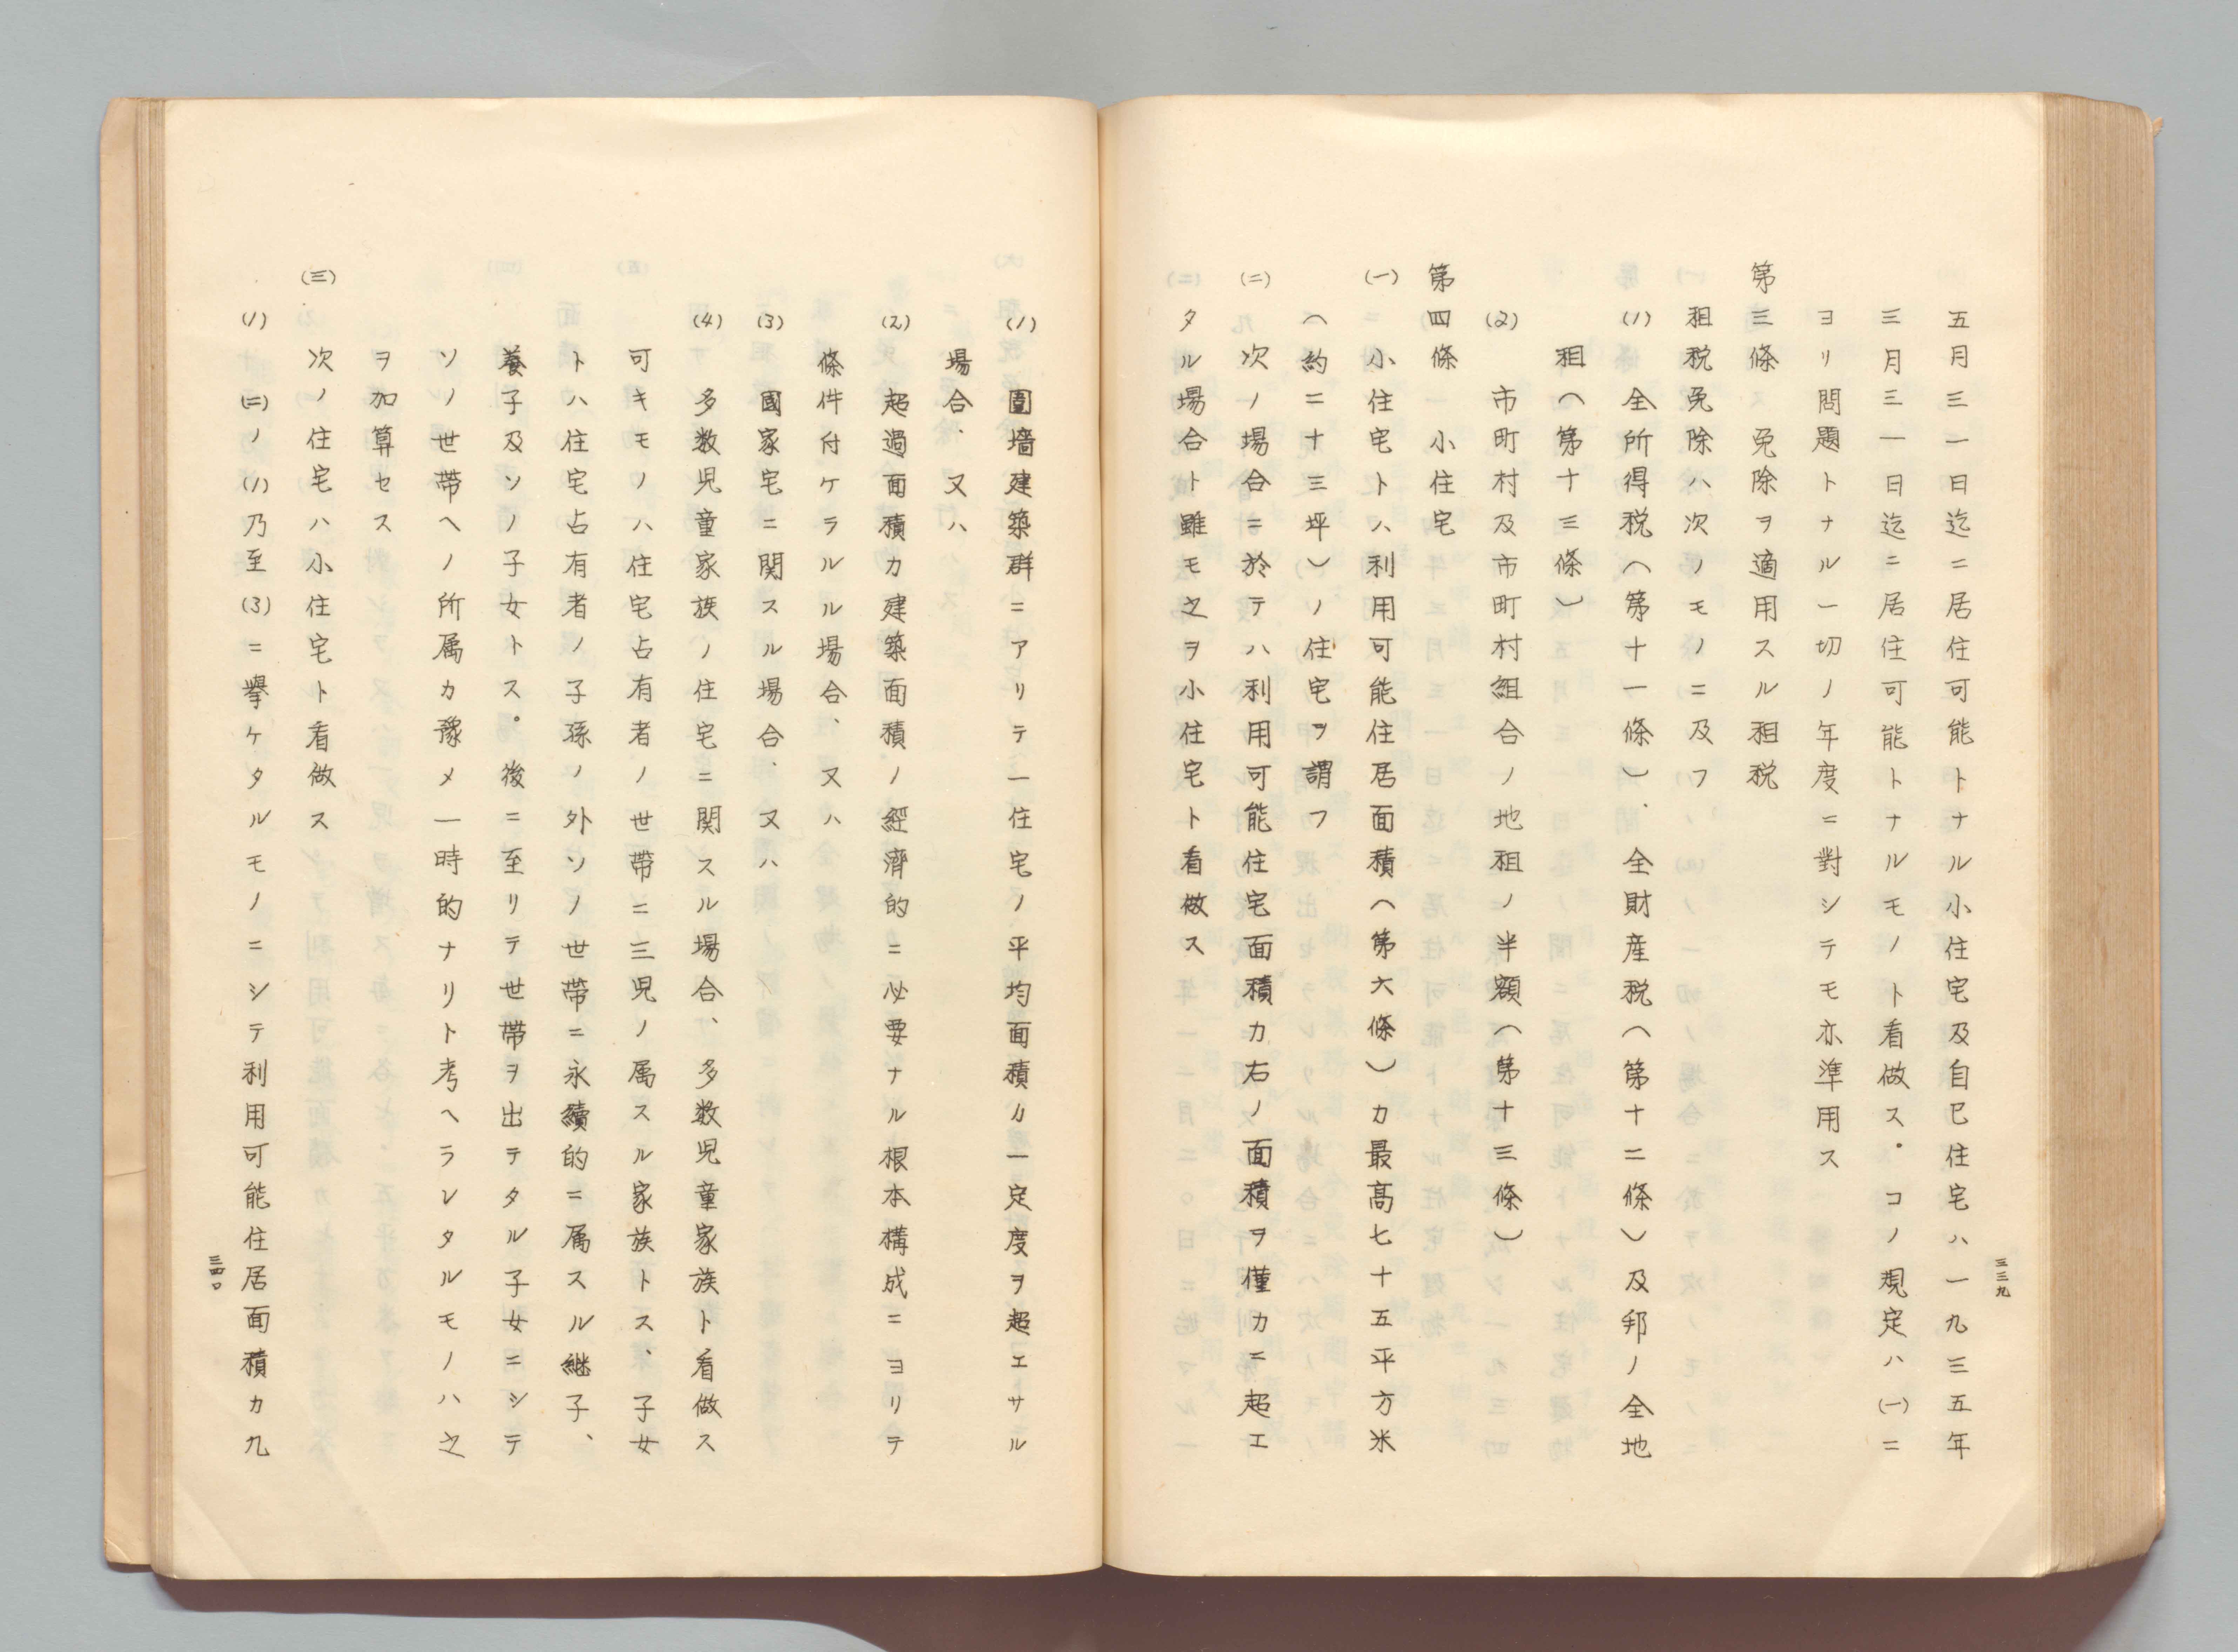 三三九
五月三一日迄ニ居住可能トナル小住宅及自己住宅ハ一九三五年
三月三一日迄ニ居住可能トナルモノト看做ス。コノ規定ハ(一)ニ
ヨリ問題トナル一切ノ年度ニ對シテモ亦準用ス
第三條 免除ヲ適用スル租税
租税免除ハ次ノモノニ及フ
(1) 全所得税(第十一條)、全財産税(第十二條)及邦ノ全地
租(第十三條)
(2) 市町村及市町村組合ノ地租ノ半額(第十三條)
第四條 小住宅
(一) 小住宅トハ利用可能住居面積(第六條)カ最高七十五平方米
(約二十三坪)ノ住宅ヲ謂フ
(二) 次ノ場合ニ於テハ利用可能住宅面積カ右ノ面積ヲ僅カニ超エ
タル場合ト雖モ之ヲ小住宅ト看做ス
(1) 圍墻建築群ニアリテ一住宅ノ平均面積カ一定度ヲ超エサル
場合、又ハ
(2) 超過面積カ建築面積ノ經濟的ニ必要ナル根本構成ニヨリテ
條件付ケラルル場合、又ハ
(3) 國家宅ニ関スル場合、又ハ
(4) 多数児童家族ノ住宅ニ関スル場合、多数児童家族ト看做ス
可キモノハ住宅占有者ノ世帯ニ三児ノ属スル家族トス、子女
トハ住宅占有者ノ子孫ノ外ソノ世帯ニ永續的ニ属スル継子、
養子及ソノ子女トス。後ニ至リテ世帯ヲ出テタル子女ニシテ
ソノ世帯ヘノ所属カ豫メ一時的ナリト考ヘラレタルモノハ之
ヲ加算セス
(三) 次ノ住宅ハ小住宅ト看做ス
(1) (二)ノ(1)乃至(3)ニ擧ケタルモノニシテ利用可能住居面積カ九
三四〇